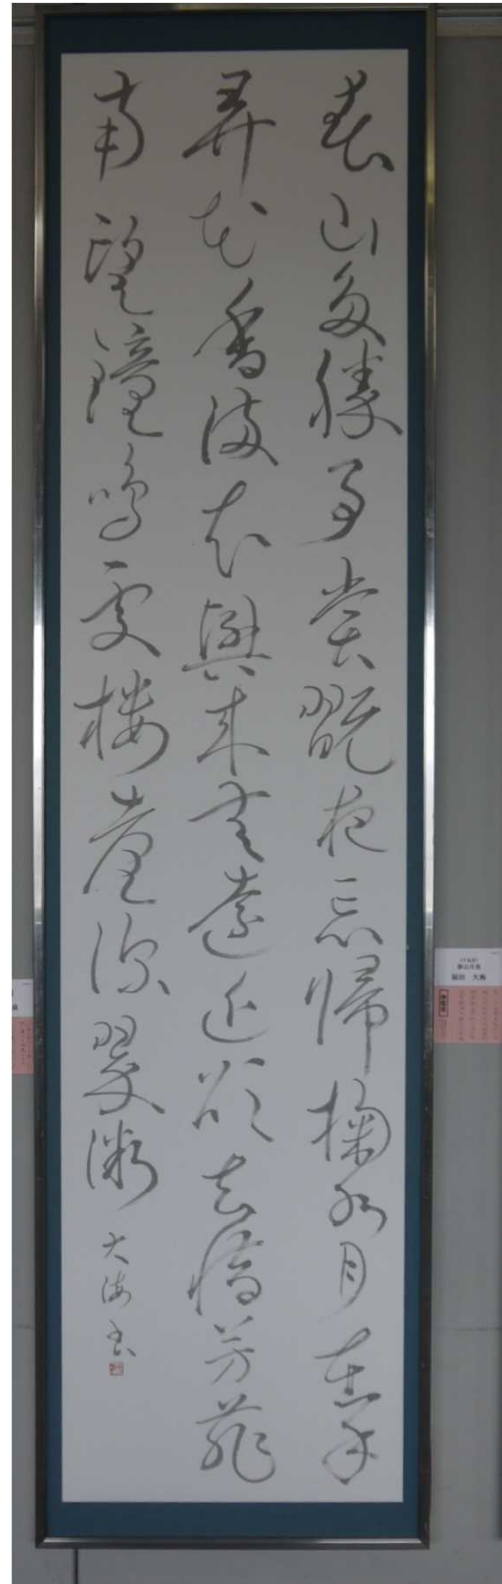 春山多勝事賞翫夜忘帰掬水月在手
弄花香満衣興来無遠近欲去惜芳菲
南望鐘鳴處楼臺深翠微
大海書